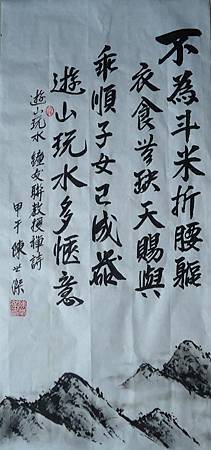 不為斗米折腰軀
衣食無缺天賜與
乖順子女已成蔭
遊山玩水多愜意
遊山玩水 鍾友聯教授禪詩
甲午 陳世傑